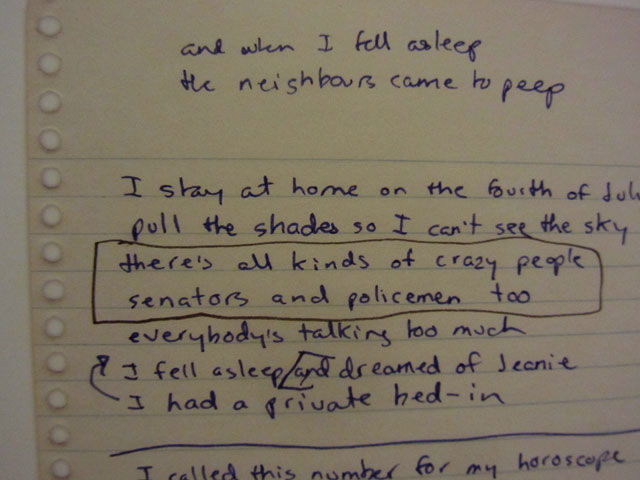 and when I fell asleep
the neighbours came to peep
I stay at home on the fourth of July
pull the shades so I can't see the sky
there's all kinds of crazy people
senators and policemen too
everybody's talking too much
I fell asleep and dreamed of Jeanie
I had a private bed-in
I called this number for my horoscope